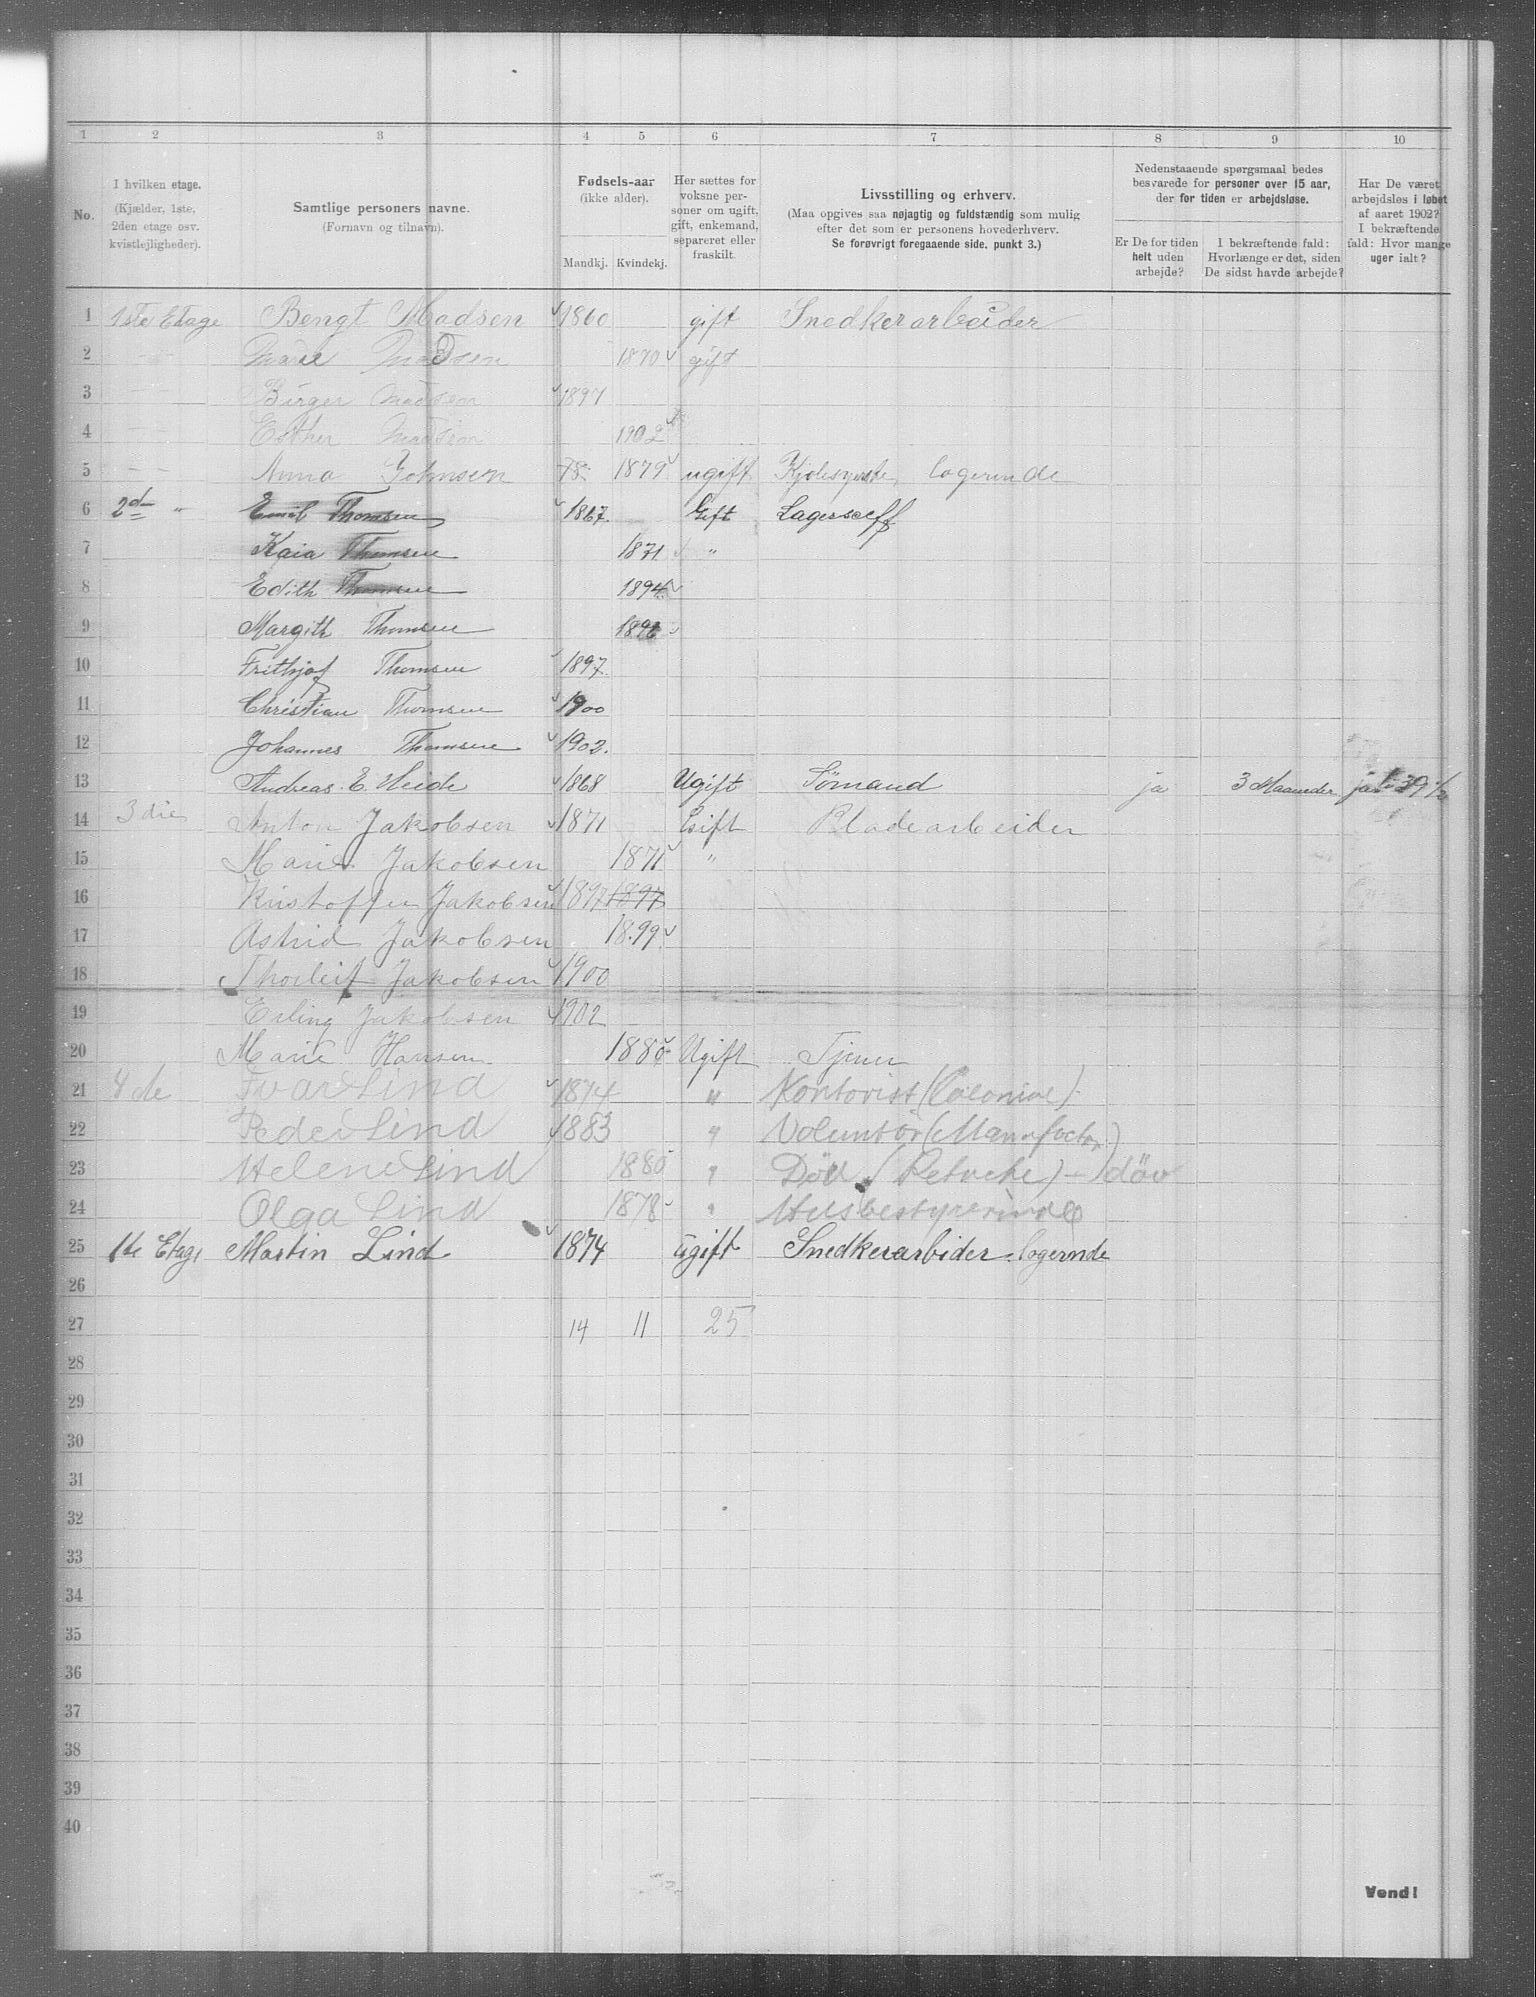 1 2 3 4 5 6 7 8 9 10
No.
I hvilken etage.
(Kjælder, 1ste, 2den etage osv. kvistlejligheder).
Samtlige personers navne.
(Fornavn og tilnavn).
Fødsels-aar
(ikke alder).
Mandkj. Kvindekj.
Her sættes for voksne personer om ugift, gift, enkemand, separeret eller fraskilt.
Livsstilling og erhverv.
(Maa opgives saa nøjagtig og fuldstændig som mulig efter det som er personens hovederhverv.
Se forøvrigt foregaaende side, punkt 3.)
Nedenstaaende spørgsmaal bedes besvarede for personer over 15 aar, der for tiden er arbejdsløse.
Er De for tiden helt uden arbejde?
I bekræftende fald: Hvorlænge er det, siden De sidst havde arbejde?
Har De været arbejdsløs i løbet af aaret 1902? I bekræftende fald: Hvor mange uger ialt?
1 1ste Etage Bengt Madsen 1860 gift Snedkerarbeider
2 Madsen 1870 gift
3 Birger Madsen 1897
4 Esther Madsen 1902
5 Anna Johnsen 78 1879 ugift Kjolesyerske, logerende
6 2den " Emil Thomsen 1867. Gift
7 Kaia Thomsen 1871 "
8 Edith Thomsen 1894
9 Margith Thomsen
10 Frithjof Thomsen 1897.
11 Christian Thomsen 1900
12 Johannes Thomsen 1902.
13 Andreas E. Heide 1868 Ugift Sømand ja 3 Maaneder ja
14 3die Anton Jakobsen 1871 Gift Pladearbeider
15 Marie Jakobsen 1871 "
16 Kristoffer Jakobsen 1897 1897
17 Astrid Jakobsen 1899
18 Thorleif Jakobsen 1900
19 Erling Jakobsen 1902
20 Marie Hansen 1880 Ugift Tjener
21 4de Ivar Lind 1874 " Kontorist (Kolonial)
22 Peder Lind 1883 " Voluntør (Manufactur)
23 Helene Lind 1880 " Døv (Retuche) - døv
24 Olga Lind 1878 " Husbestyrerinde
25 1ste Etage Martin Lind 1874 ugift Snedkerarbider. logernde
26
27 14 11 25
28
29
30
31
32
33
34
35
36
37
38
39
40
Vend!